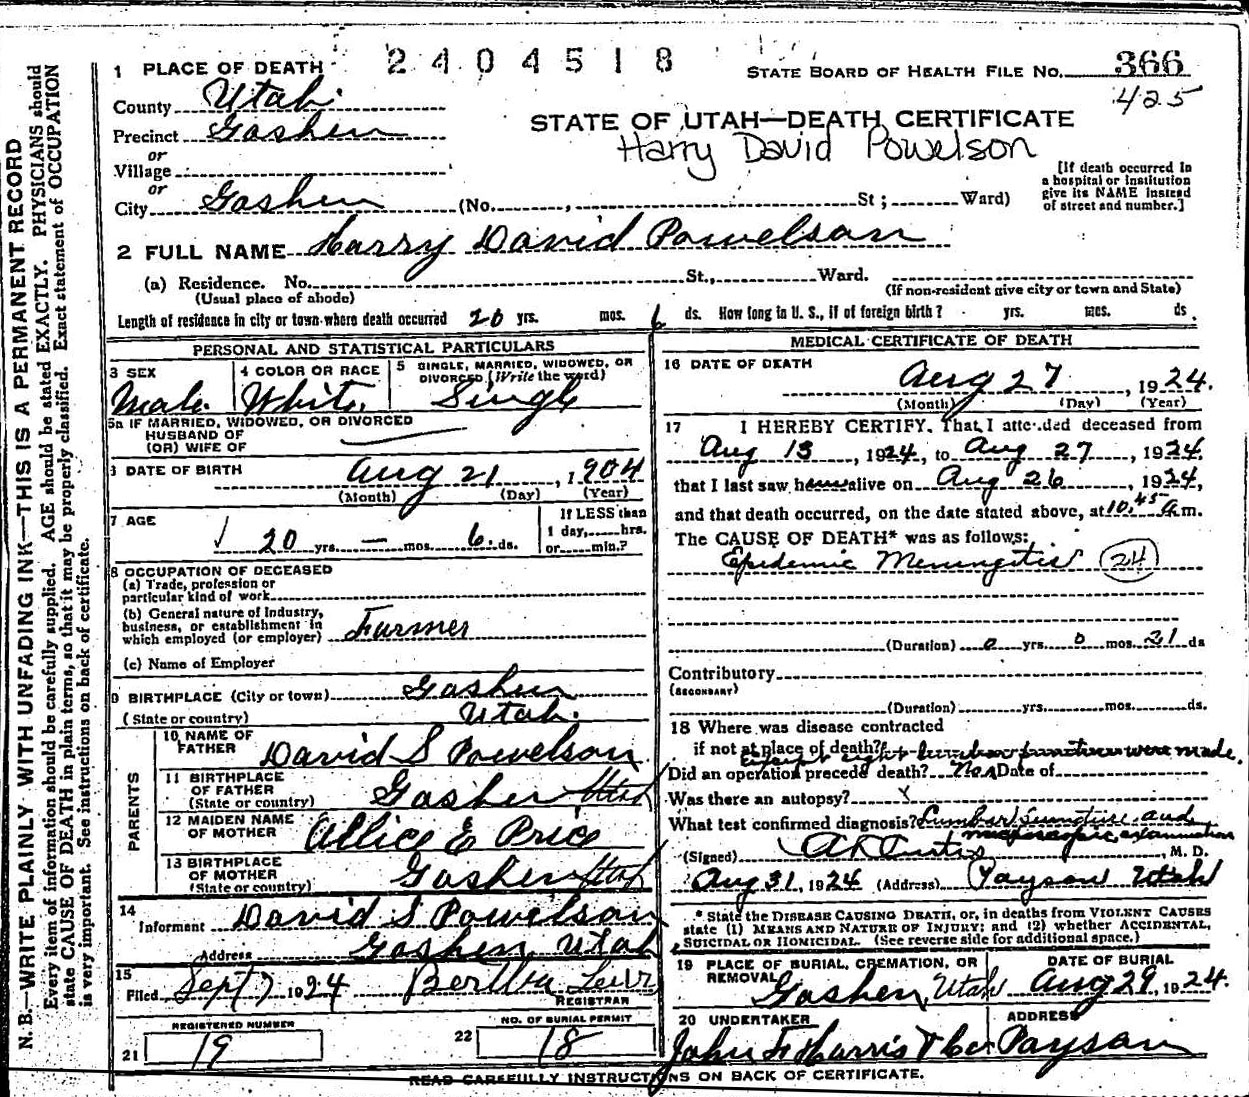 2404518
1 PLACE OF DEATH
STATE BOARD OF HEALTH FILE NO. 366
425
County Utah
Precinct Goshen
or
Village
or
City Goshen (No. , St; Ward)
STATE OF UTAH—DEATH CERTIFICATE
Harry David Powelson
[If death occurred in
a hospital or institution
give its NAME instead
of street and number.]
2 FULL NAME Harry David Powelson
(a) Residence. No. St., Ward.
(Usual place of abode)
(If non-resident give city or town and State)
Length of residence in city or town where death occurred 20 yrs. mos. 6 ds. How long in U. S., if of foreign birth? yrs. mos. ds.
PERSONAL AND STATISTICAL PARTICULARS
3 SEX
Male
4 COLOR OR RACE
White
5 SINGLE, MARRIED, WIDOWED, OR
DIVORCED (Write the word)
Single
5a IF MARRIED, WIDOWED, OR DIVORCED
HUSBAND OF
(OR) WIFE OF
6 DATE OF BIRTH
Aug 21, 1904
(Month) (Day) (Year)
7 AGE
20 yrs. — mos. 6. ds.
If LESS than
1 day, hrs.
or min.?
8 OCCUPATION OF DECEASED
(a) Trade, profession or
particular kind of work
(b) General nature of Industry,
business, or establishment in
which employed (or employer) Farmer
(c) Name of Employer
9 BIRTHPLACE (City or town) Goshen
(State or country) Utah.
PARENTS
10 NAME OF
FATHER David S Powelson
11 BIRTHPLACE
OF FATHER
(State or country) Goshen Utah
12 MAIDEN NAME
OF MOTHER Allice E Price
13 BIRTHPLACE
OF MOTHER
(State or country) Goshen Utah
14
Informent David S Powelson
Address Goshen Utah
15
Filed Sept 7 1924 Bertha
REGISTRAR
REGISTERED NUMBER
21 19
NO. OF BURIAL PERMIT
22 18
MEDICAL CERTIFICATE OF DEATH
16 DATE OF DEATH
Aug 27, 1924.
(Month) (Day) (Year)
17 I HEREBY CERTIFY, That I attended deceased from
Aug 13, 1924, to Aug 27, 1924,
that I last saw him alive on Aug 26, 1924,
and that death occurred, on the date stated above, at 10.45 a.m.
The CAUSE OF DEATH* was as follows:
Epidemic Meningitis 24
(Duration) 0 yrs. 0 mos. 21 ds
Contributory
(SECONDARY)
(Duration) yrs. mos. ds.
18 Where was disease contracted
if not at place of death?
Except eight lumbar punctures were made.
Did an operation precede death? No Date of
Was there an autopsy?
What test confirmed diagnosis? Lumbar Puncture and
examination
(Signed) A K Curtis, M. D.
Aug 31, 1924 (Address) Payson Utah
* State the DISEASE CAUSING DEATH, or, in deaths from VIOLENT CAUSES
state (1) MEANS AND NATURE OF INJURY; and (2) whether ACCIDENTAL,
SUICIDAL OR HOMICIDAL. (See reverse side for additional space.)
19 PLACE OF BURIAL, CREMATION, OR
REMOVAL
Goshen, Utah
DATE OF BURIAL
Aug 29, 1924.
20 UNDERTAKER
John F Harris & Co
ADDRESS
Payson
READ CAREFULLY INSTRUCTIONS ON BACK OF CERTIFICATE.
N.B.—WRITE PLAINLY WITH UNFADING INK—THIS IS A PERMANENT RECORD
Every item of information should be carefully supplied. AGE should be stated EXACTLY. PHYSICIANS should
state CAUSE OF DEATH in plain terms, so that it may be properly classified. Exact statement of OCCUPATION
is very important. See instructions on back of certificate.